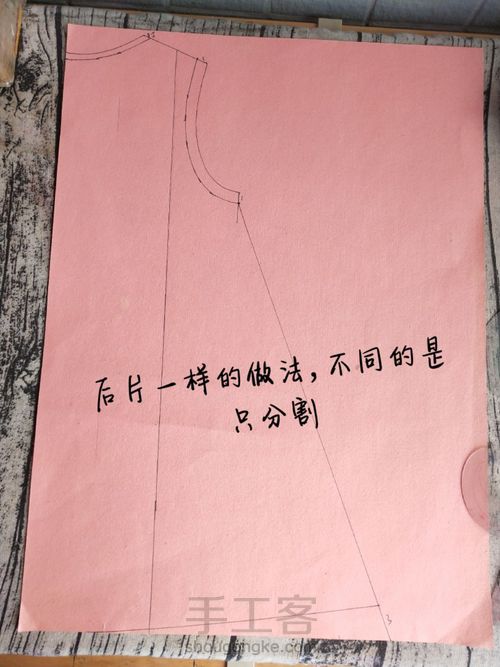 后片一样的做法，不同的是
只分割
手工客
shougongke.com
3